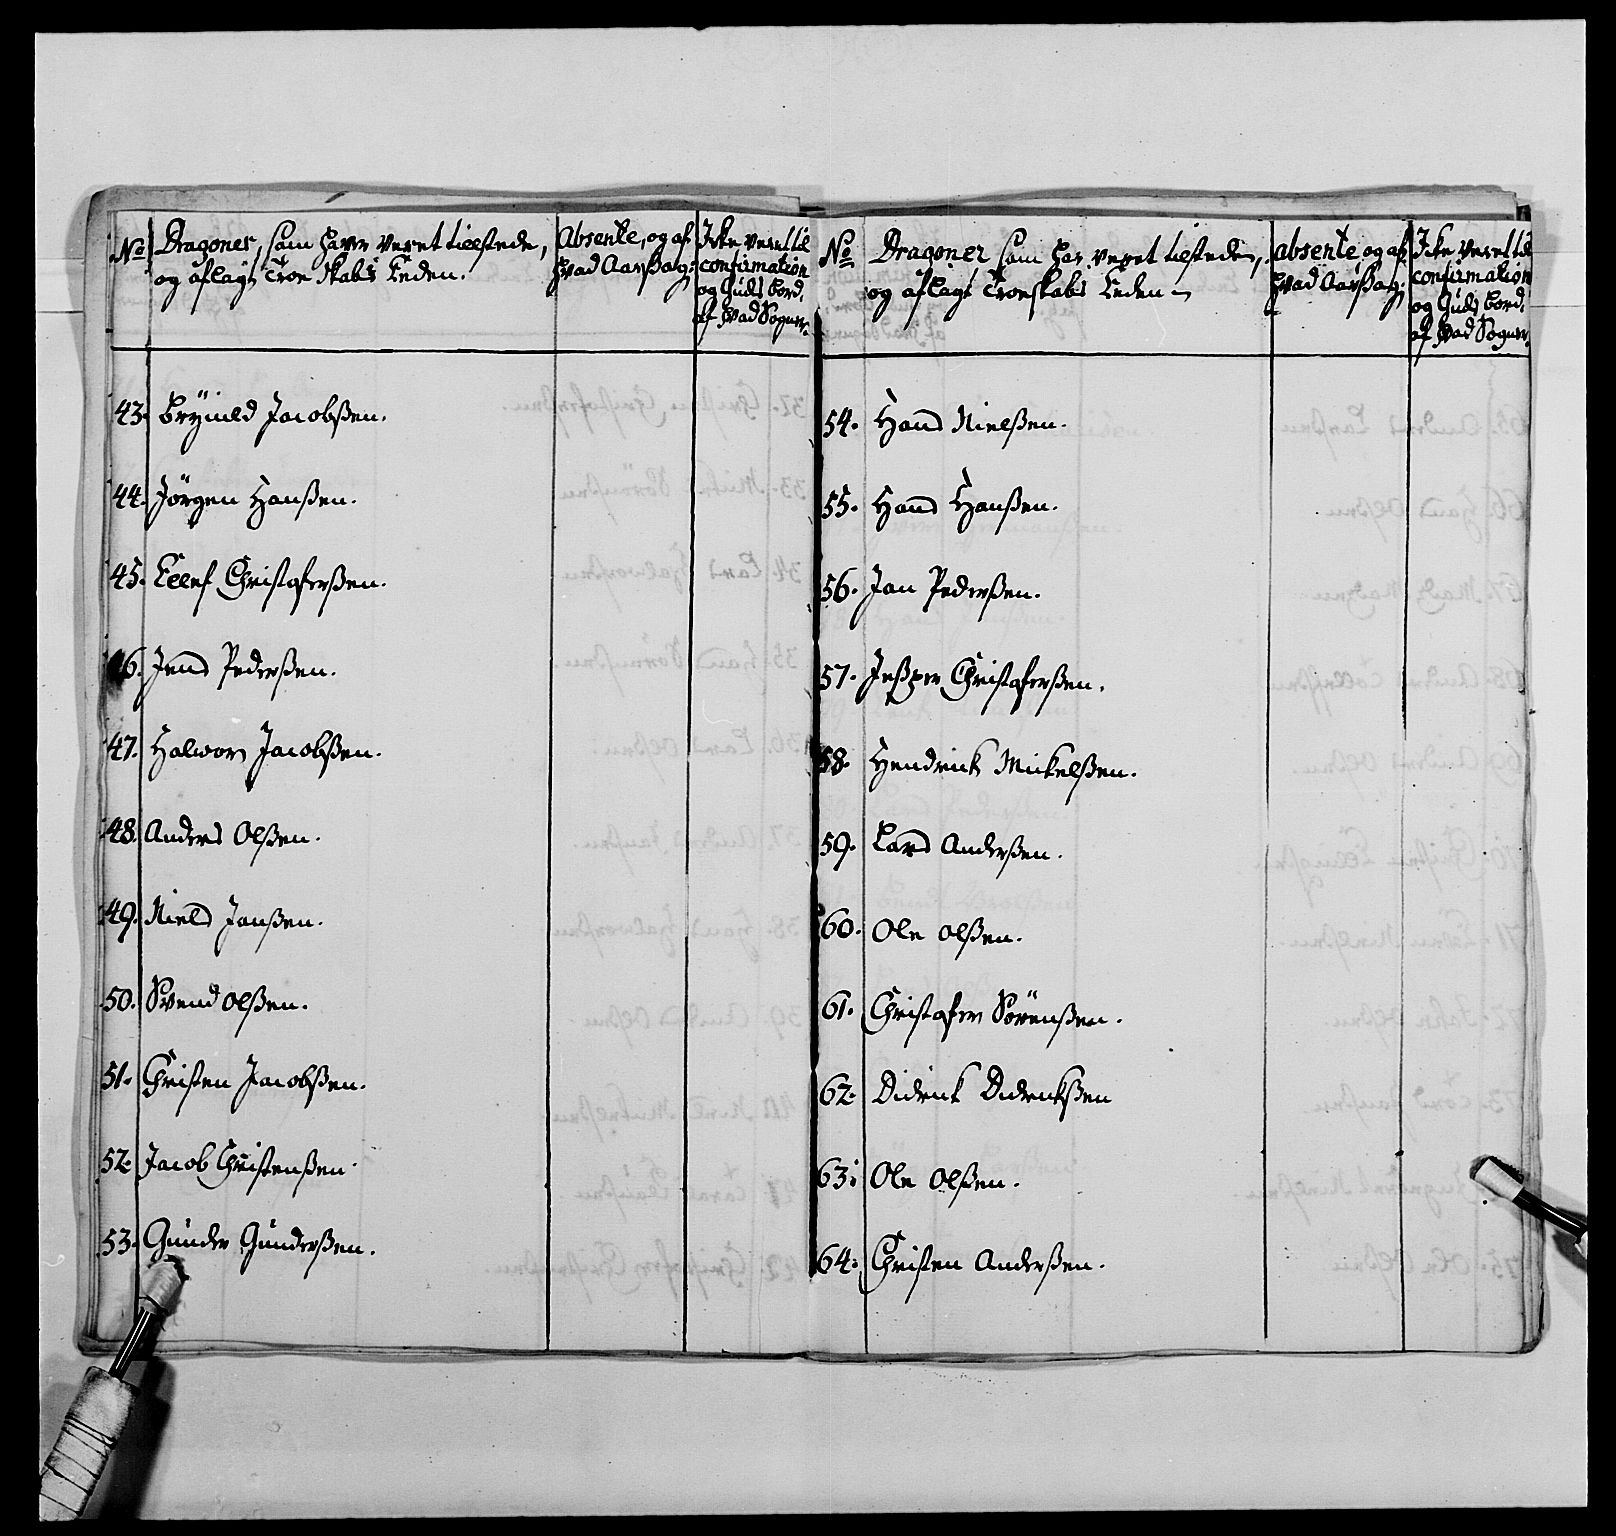 No
Dragoner, som haver veret tillstede,
og aflagt Troe Skabs Eeden.
Absente, og af
hvad Aarßag:
Icke veret til
confirmation
og Guds bord,
af hvad Sogner.
43. Brynild Jacobßen.
44. Jörgen Hanßen.
45. Ellef Christoferßen.
46. Jens Pederßen.
47. Halvor Jacobßen.
48. Anders Olßen.
49. Niels Janßen.
50. Svend Olßen.
51. Christen Jacobßen.
52. Jacob Christenßen.
53. Gunder Gunderßen.
No
Dragoner som har veret tilsteden,
og aflagt Troeskabs Eeden
Absente og af
hvad Aarßag:
Icke veret til
confirmation
og Guds bord,
af hvad Sogner.
54. Hans Nielßen.
55. Hans Hanßen.
56. Jan Pederßen.
57. Jeßper Christoferßen.
58. Hendrick Mickelßen.
59. Lars Anderßen.
60. Ole Olßen.
61. Christofer Sörenßen.
62. Didrick Didrickßen
63. Ole Olßen.
64. Christen Anderßen.